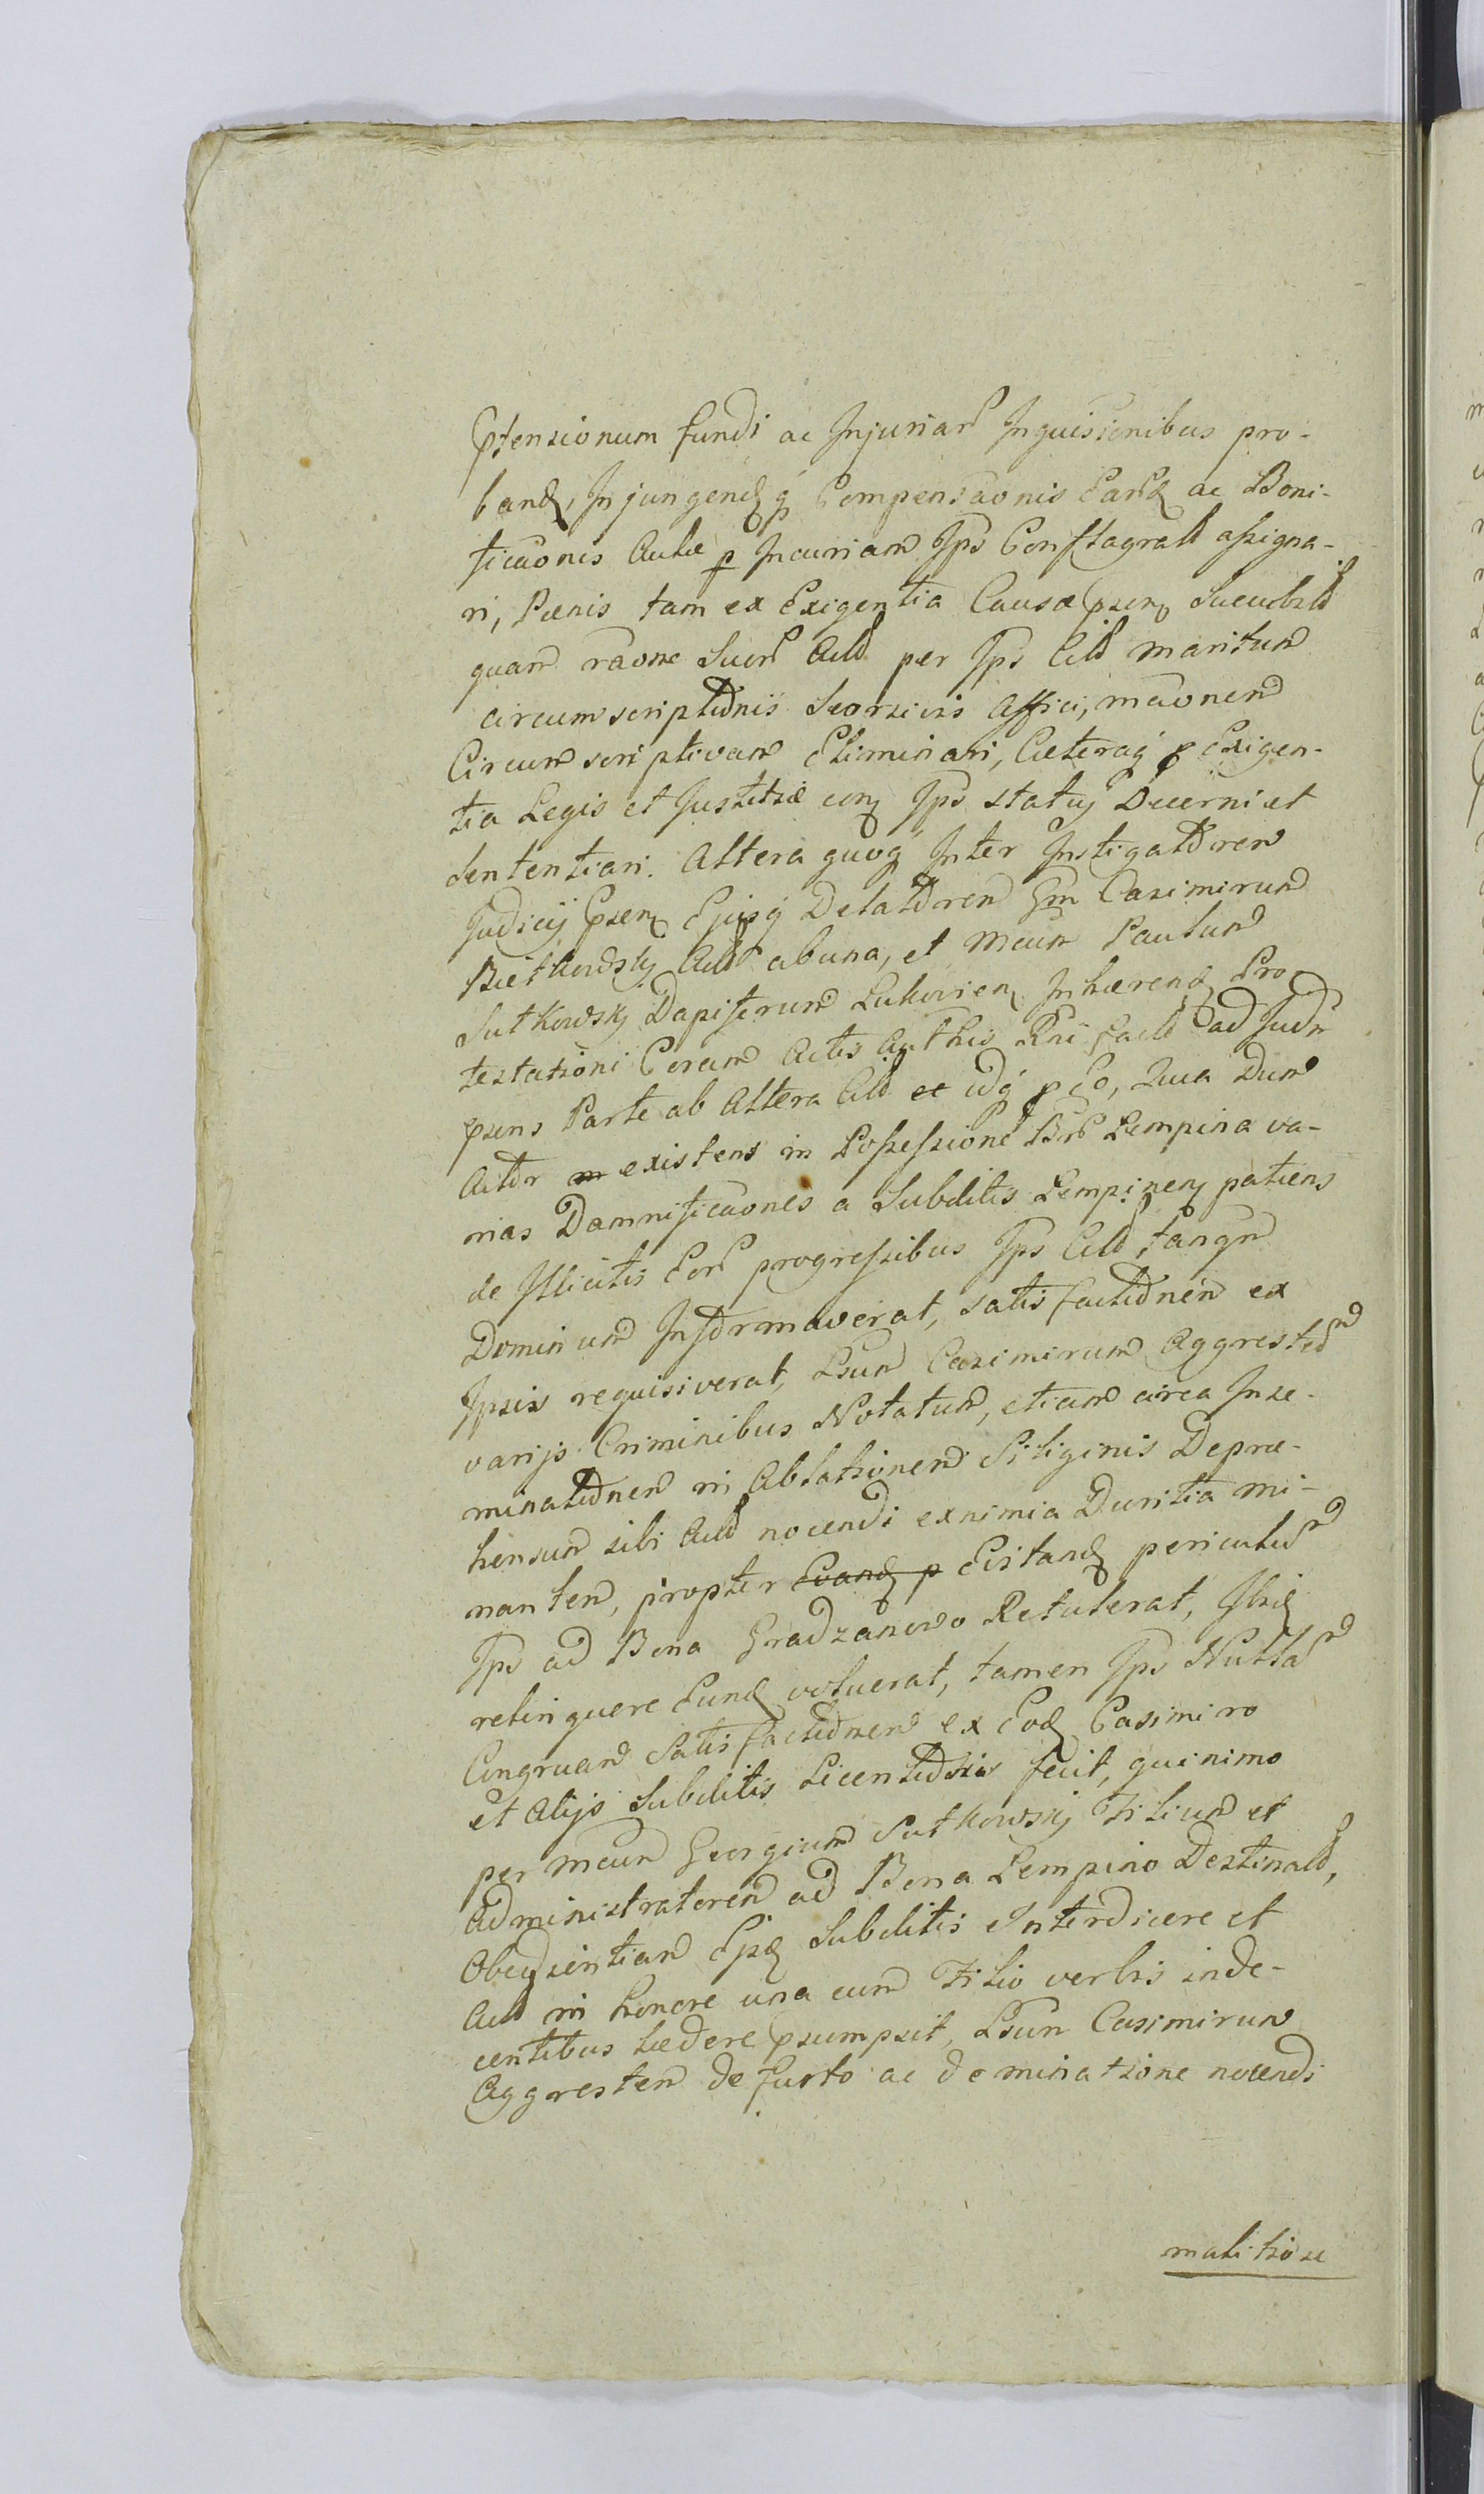 Ptensionum fundi ac Injuriar Inquisionibus pro-
band, Injungendq Compensaonis Eard ac Boni-
ficaonis Aulæ p Incuriam Ips Conflagratt assigna-
ri, Pœnis tam ex Exigentia Causæ psen
quam raone Suor Actt per Ips Citt maritum
circumscriptionis Seorsivis Affici, maonem
Circumscriptivam Eliminari, Cæteraq p Exigen-
tia Legis et Justitiæ con Ips statuj Decerni et
Sententiari. Altera quoq Inter Instigatorem
Judicij psen Ejusq Delatorem Gm Casimirum
Bietkowskj Act ab una, et Mcum Paulum
Sutkowskj Dapiferum Lukovien Inhærend Pro
testationi Coram Actis Authis Rni factt ad Judm
psens Parte ab Altera Citt et idq p Eo, Quia Dum
Actor in existens in Possessione Bor Lempina va-
rias Damnificaones a Subditis Lempinen patiens
de Illicitis Eor progressibus Ips Citt tanqm
Dominum Informaverat, satisfactionem ex
Ipsis requisiverat, Lsum Casimirum Aggrestem
varijs Criminibus Notatum, etiam circa Inse-
minationem ni Ablationem Siliginis Depræ-
hensum sibi Actt nocendi ex nimia Duritia mi-
nantem, propter Evand p Evitand periculum
Ips ad Bona Gradzanowo Retulerat, Ibid
relinquere Eund voluerat, tamen Ips Nullam
Congruam Satisfactionem ex Eod Casimiro
et Alijs Subditis Licentiosis fecit, quinimo
per Mcum Georgium Sutkowskj Filium et
Administratorem ad Bona Lempino Destinatt,
Obedientiam Ejsd Subditis Interdicere et
Actt in honore una cum Filio verbis inde-
centibus lædere psumpsit, Lsum Casimirum
Aggrestem de furto ac de minatione nocendi
malitiose